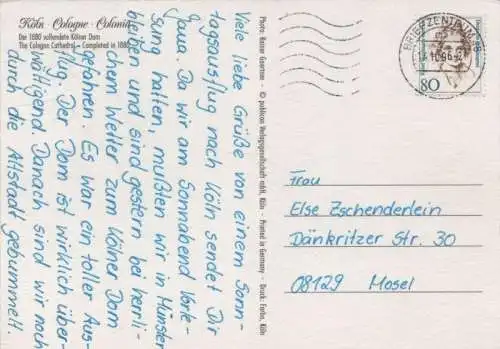 Köln · Cologne · Colonia
Der 1880 vollendete Kölner Dom
The Cologne Cathedral – Completed in 1880
Viele liebe Grüße von einem Sonn-
tagsausflug nach Köln sendet Dir
Da wir am Sonnabend Vorle-
sung hatten, mußten wir in Münster
bleiben und sind gestern bei herrli-
chem Wetter zum Kölner Dom
gefahren. Es war ein toller Aus-
flug. Der Dom ist wirklich über-
wältigend. Danach sind wir noch
durch die Altstadt gebummelt.
Photo: Rainer Gaertner · © publicon Verlagsgesellschaft mbH, Köln · Printed in Germany · Druck: Farbo, Köln
BRIEFZENTRUM
80
Frau
Else Zschenderlein
Dänkritzer Str. 30
08129 Mosel